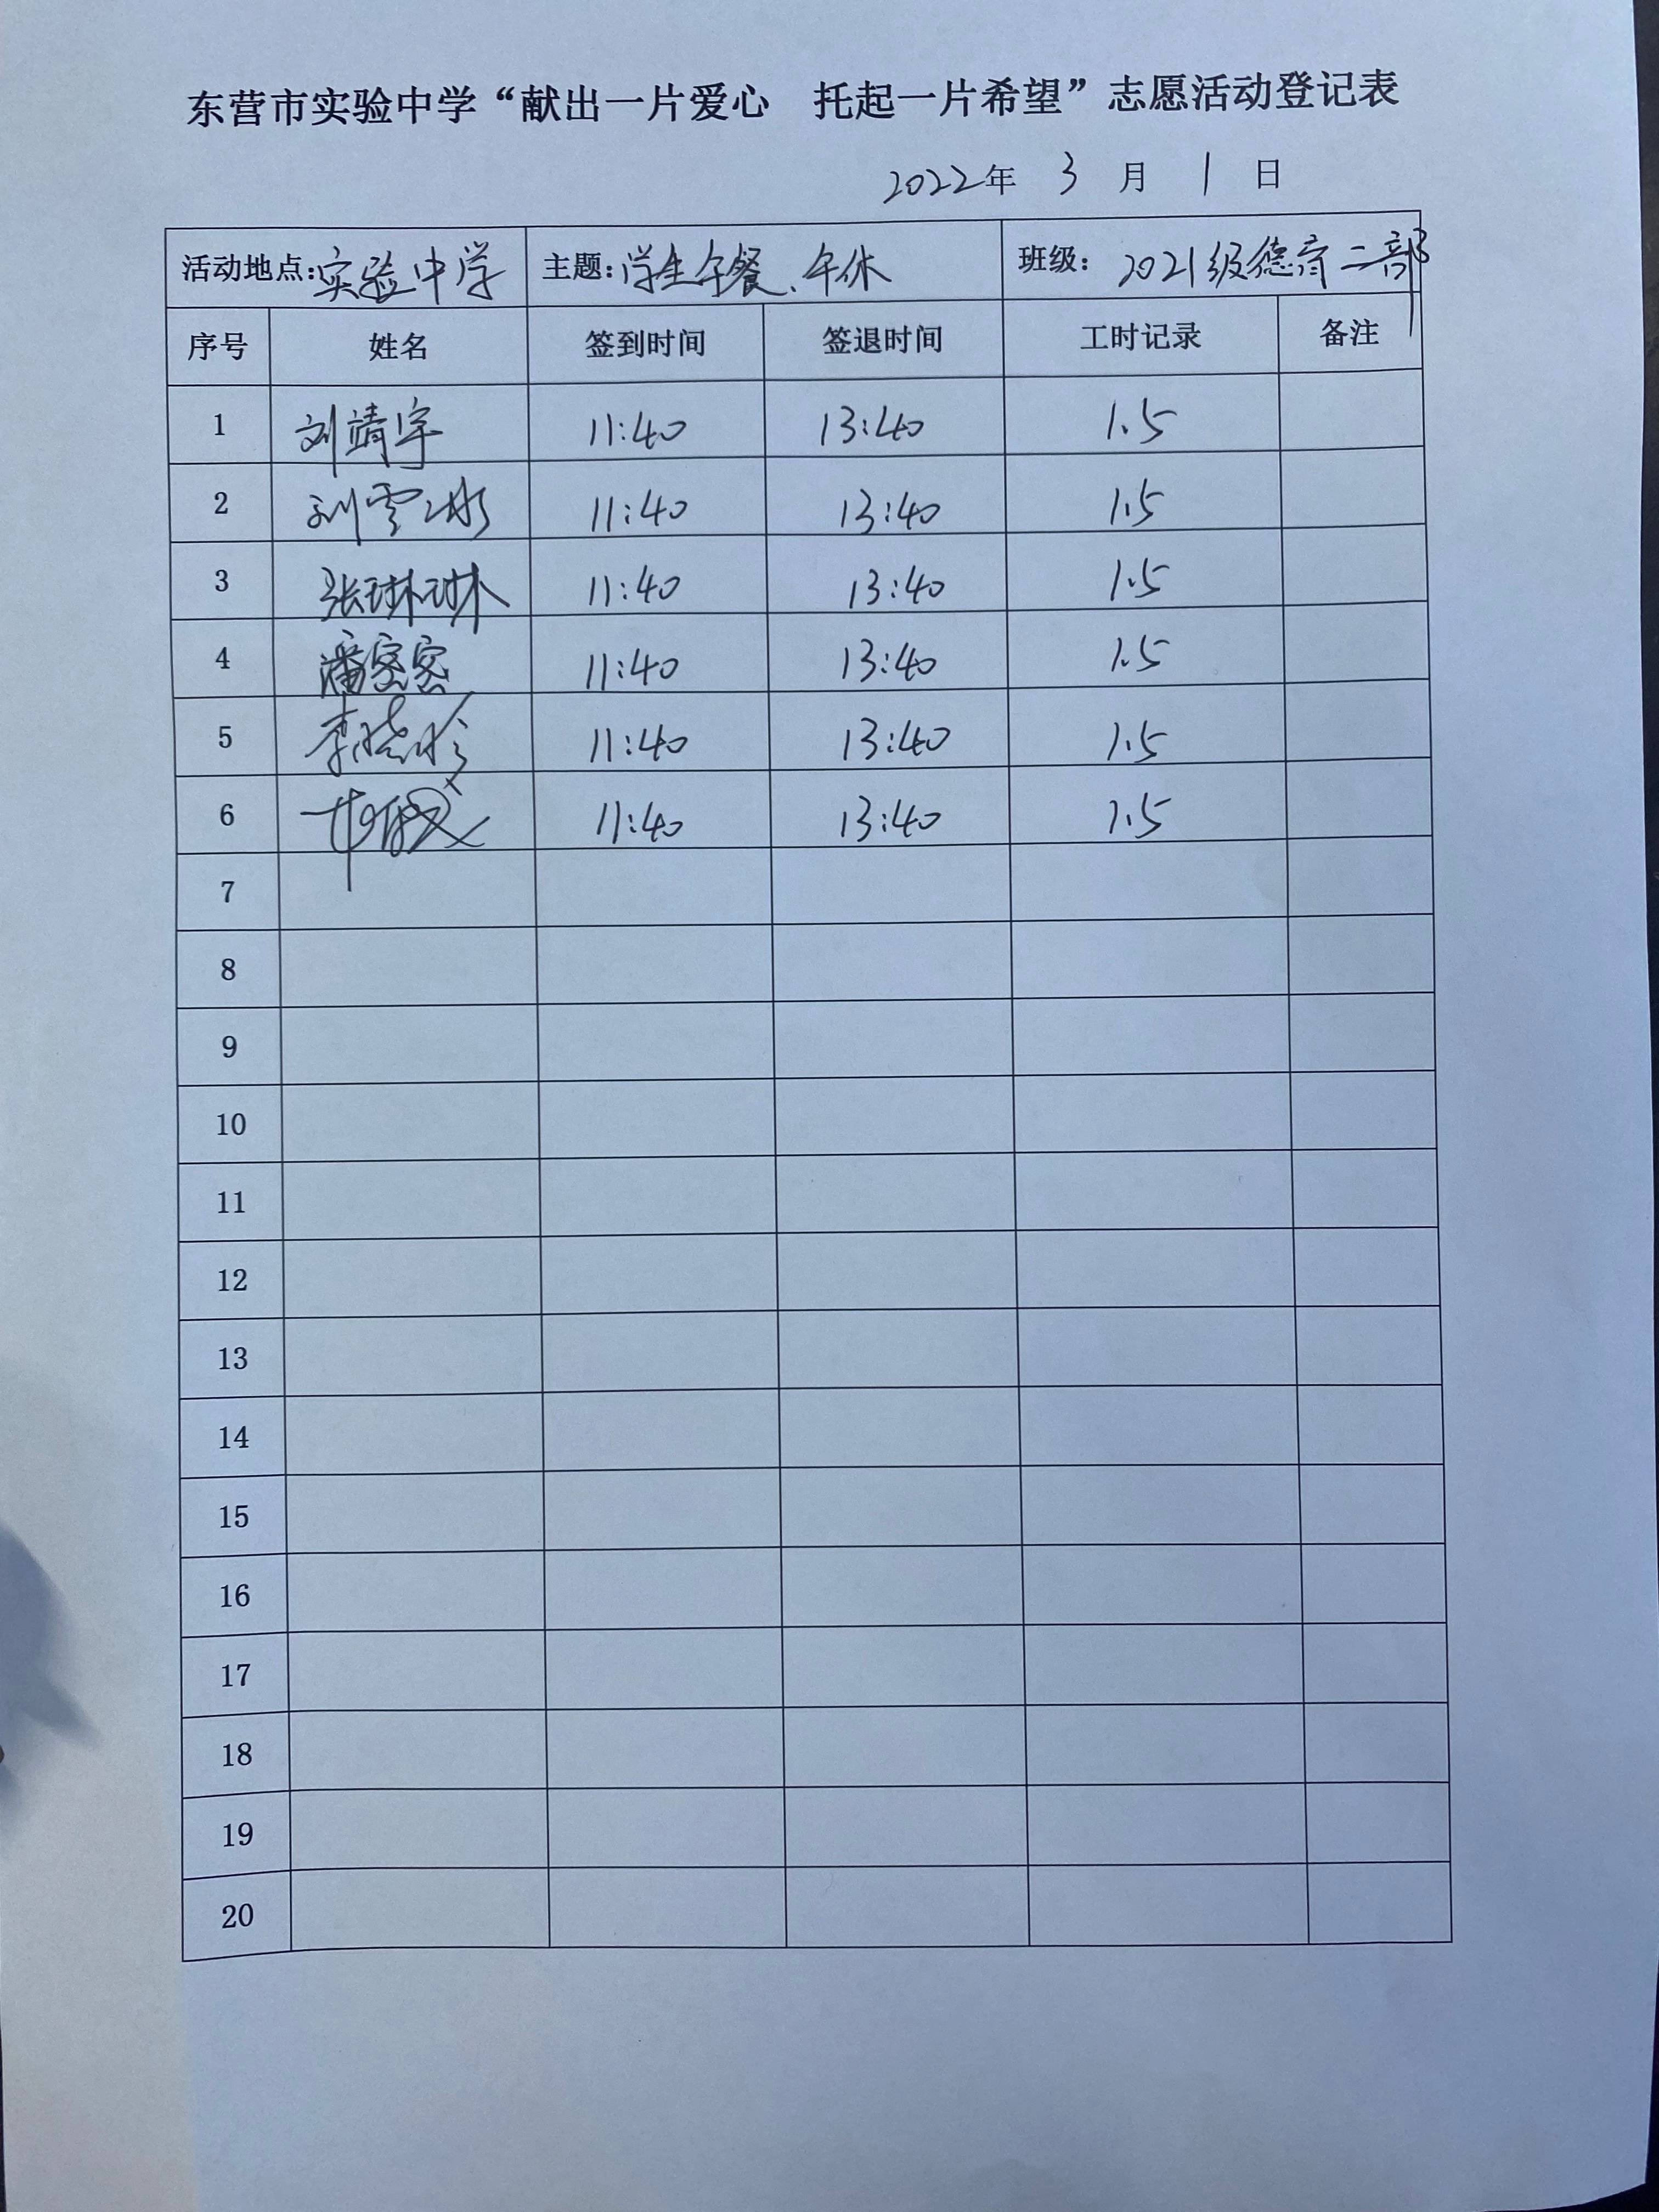 东营市实验中学“献出一片爱心　托起一片希望”志愿活动登记表
2022年 3 月 1 日
活动地点:实验中学 主题:学生午餐、午休 班级: 2021级德育二部
序号 姓名 签到时间 签退时间 工时记录 备注
1 刘靖宇 11:40 13:40 1.5
2 刘雪冰 11:40 13:40 1.5
3 张琳琳 11:40 13:40 1.5
4 潘密密 11:40 13:40 1.5
5 李晓 11:40 13:40 1.5
6 11:40 13:40 1.5
7
8
9
10
11
12
13
14
15
16
17
18
19
20